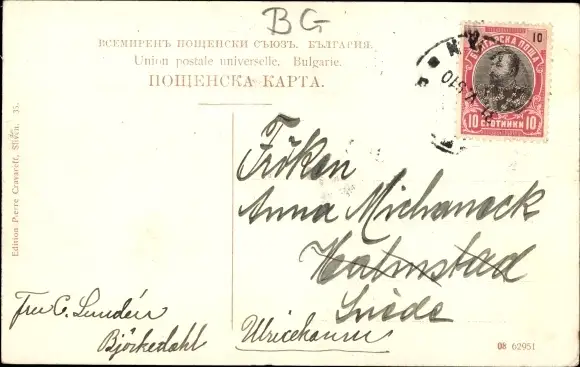 BG
ВСЕМИРЕНЪ ПОЩЕНСКИ СЪЮЗЪ. БЪЛГАРИЯ.
Union postale universelle. Bulgarie.
ПОЩЕНСКА КАРТА.
БЪЛГАРСКА ПОЩА
10
10 СТОТИНКИ 10
Edition Pierre Cravareff, Sliven. 35.
Fröken
Anna Michaneck
Halmstad
Suède
Fru C. Lundén
Björkedahl
Ulricehamn
08 62951